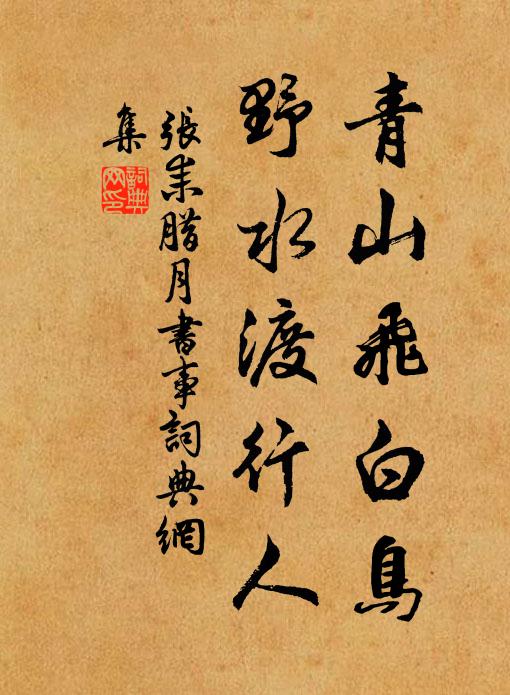 青山飛白鳥
野水渡行人
張耒腊月書事詞典網
集
詞典
网印